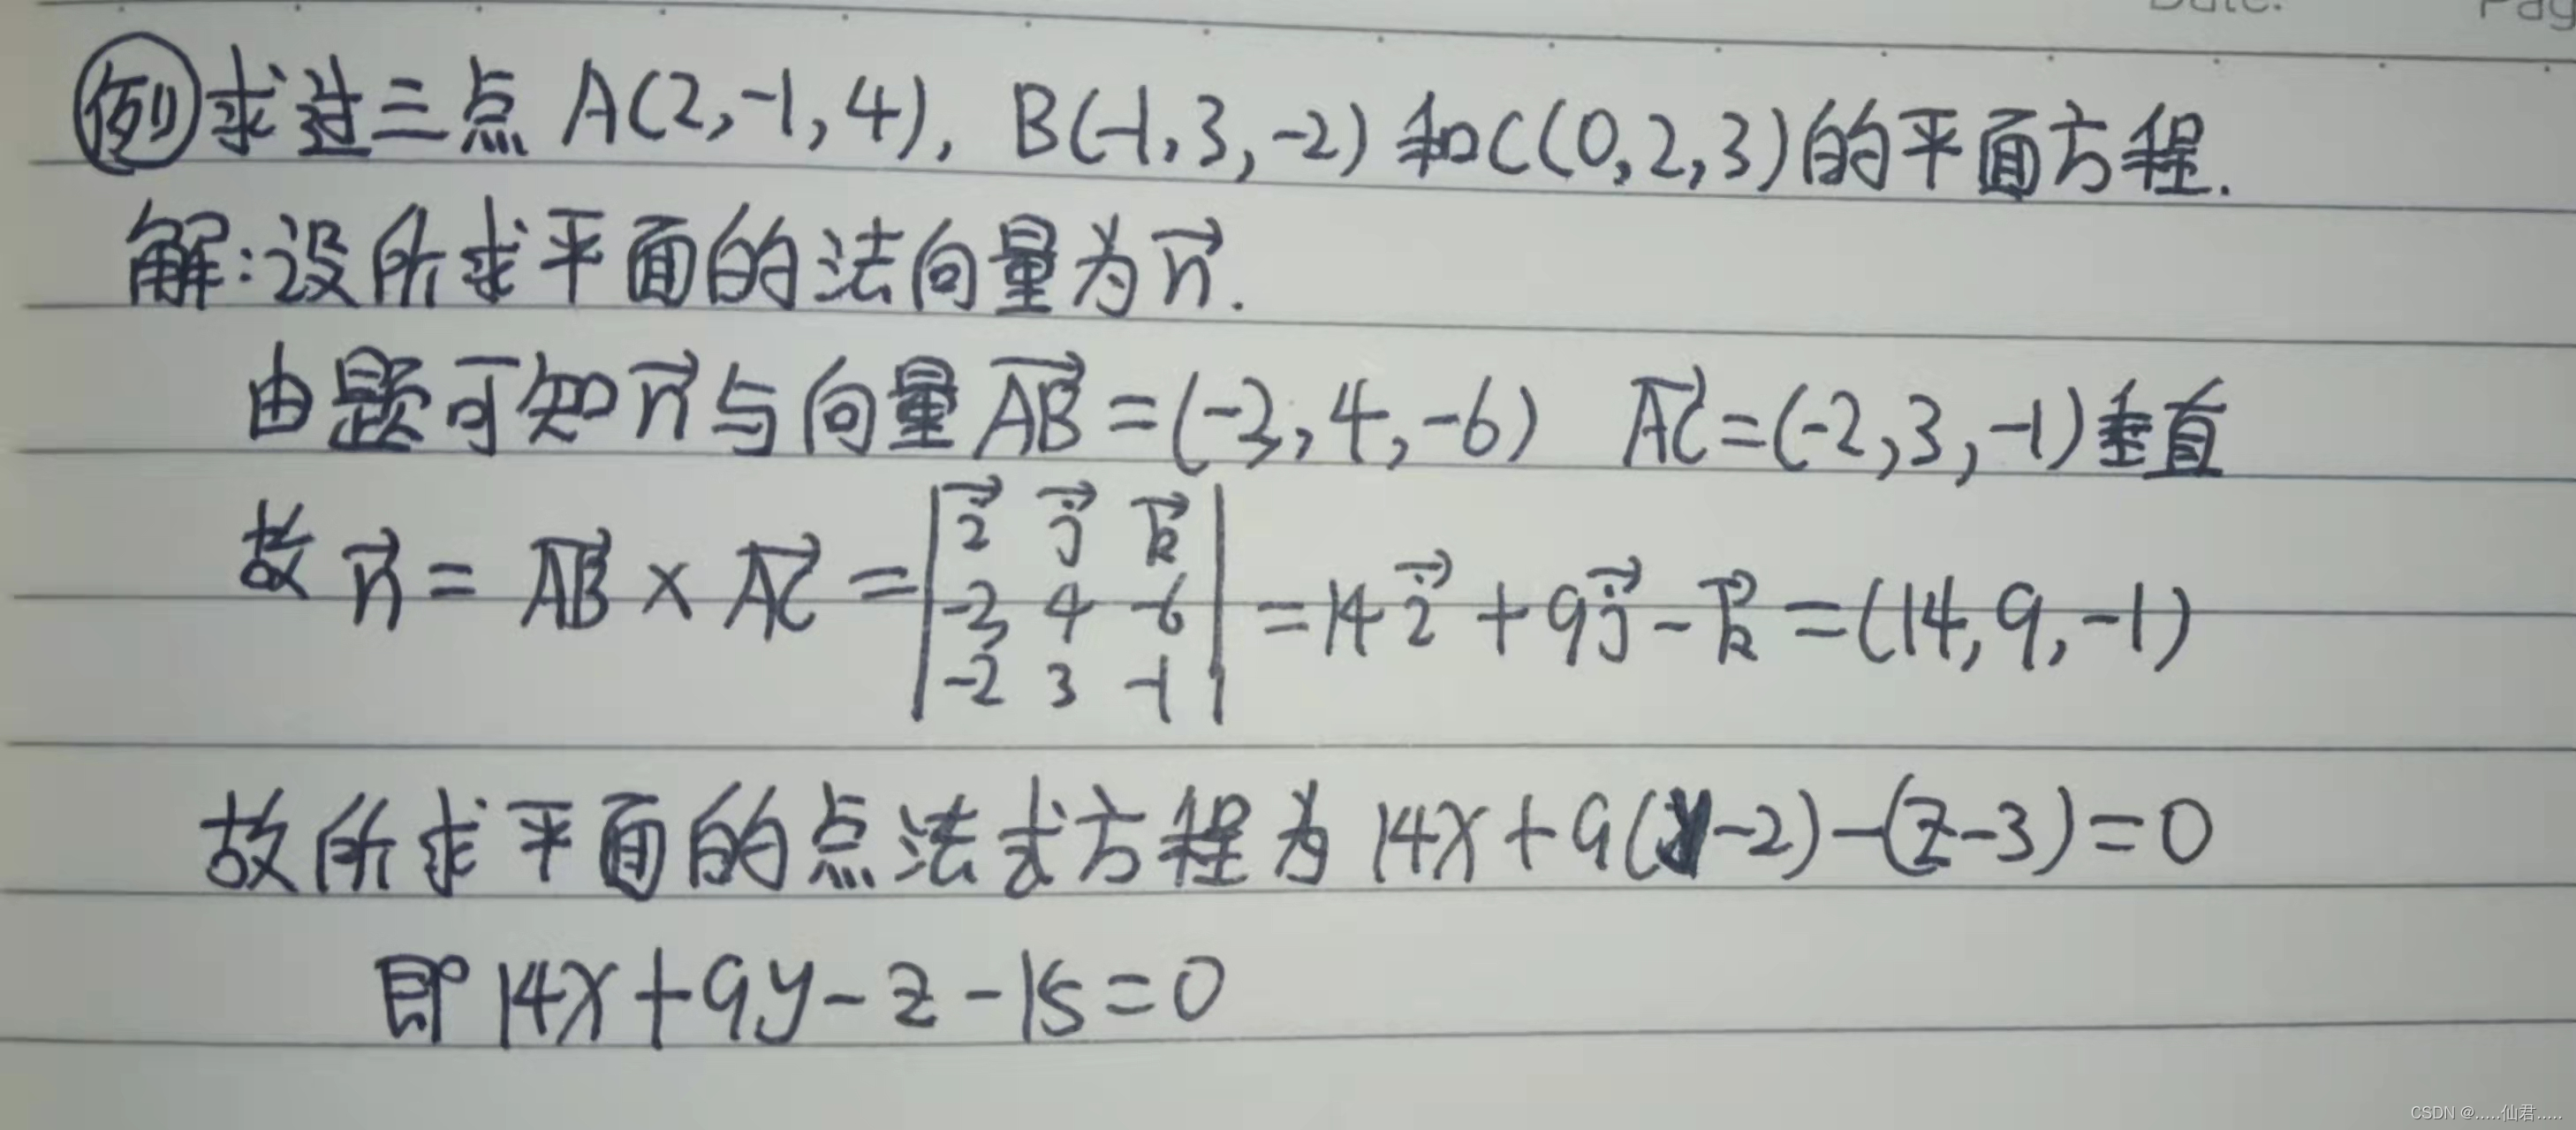 Date. Pag
例 求过三点 A(2,-1,4), B(-1,3,-2) 和C(0,2,3)的平面方程.
解:设所求平面的法向量为n⃗.
由题可知n⃗与向量AB⃗=(-3,4,-6) AC⃗=(-2,3,-1)垂直
故 n⃗ = AB⃗ × AC⃗ = |i⃗ j⃗ k⃗; -3 4 -6; -2 3 -1| = 14i⃗ + 9j⃗ - k⃗ = (14,9,-1)
故所求平面的点法式方程为 14x+9(y-2)-(z-3)=0
即 14x+9y-z-15=0
CSDN @.....仙君.....